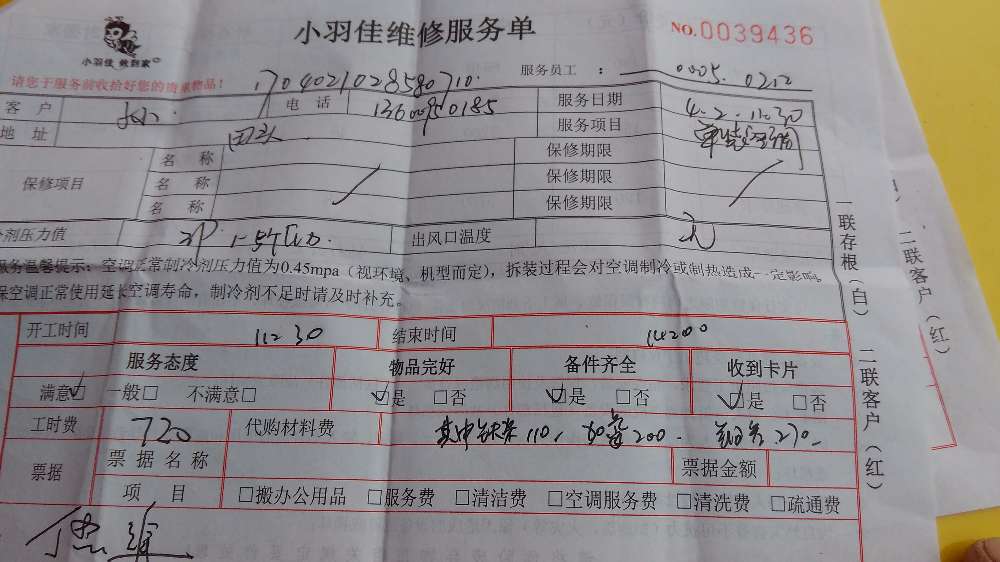 小羽佳维修服务单 NO.0039436
小羽佳 做到家
请您于服务前收拾好您的贵重物品! 1704021028580710. 服务员工 : 0005. 0202
客 户 电 话 13600950185 服务日期 4.2. 11:30
地 址 服务项目
保修项目 名 称 保修期限
名 称 保修期限
名 称 保修期限
剂压力值 出风口温度 无
服务温馨提示:空调正常制冷剂压力值为0.45mpa(视环境、机型而定),拆装过程会对空调制冷或制热造成一定影响。
保空调正常使用延长空调寿命,制冷剂不足时请及时补充。
开工时间 11:30 结束时间 14:00
服务态度 物品完好 备件齐全 收到卡片
满意☑ 一般□ 不满意□ ☑是 □否 ☑是 □否 ☑是 □否
工时费 720 代购材料费 其中支架110, 加管200. 270.
票据 票 据 名 称 票据金额
项 目 □搬办公用品 □服务费 □清洁费 □空调服务费 □清洗费 □疏通费
一联存根(白) 二联客户(红)
二联客户(红)